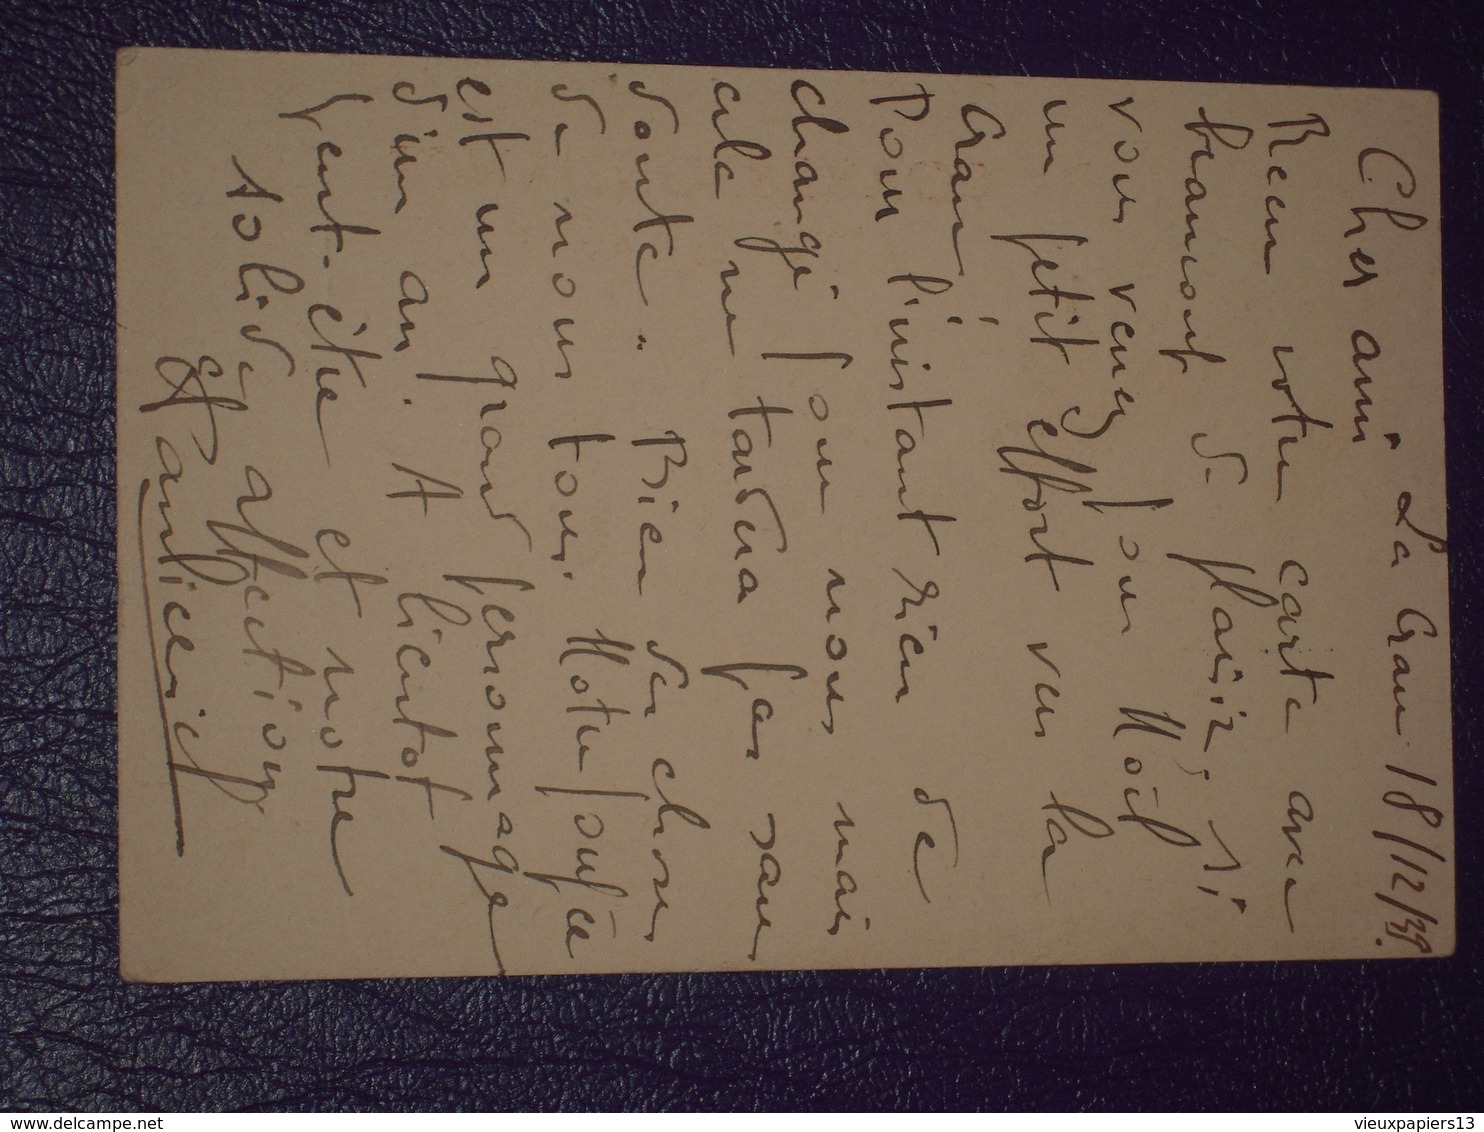 La Crau 18/12/39.
Cher ami
Recu votre carte avec
beaucoup de plaisir. Si
vous venez pour Noël
un petit effort vers la
Crau!
Pour l'instant rien de
changé pour nous mais
cela ne tardera pas sans
doute. Bien des choses
de nous tous. Notre
est un grand personnage
d'un an. A bientôt
peut-être et notre
solide affection
delcampe.net
vieuxpapiers13